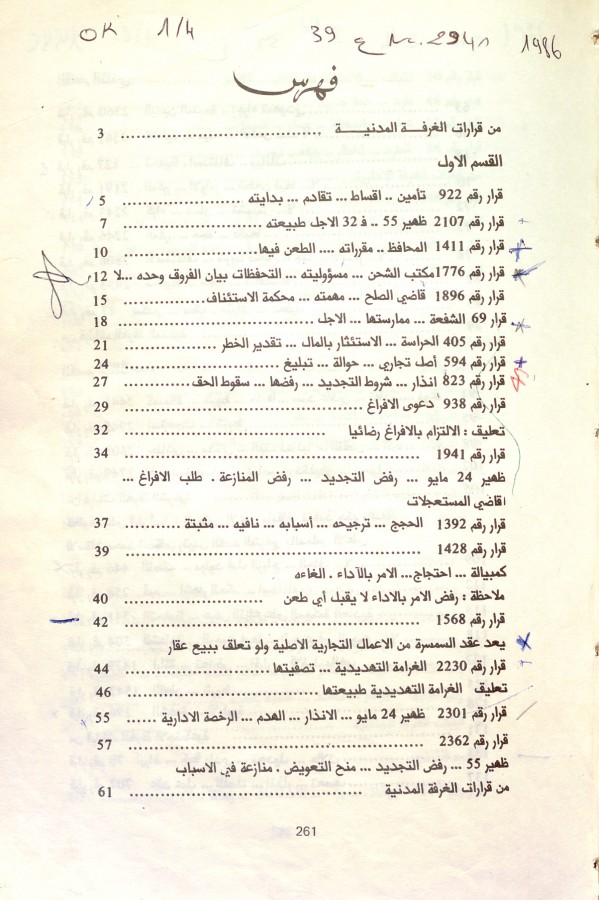 OK 1/4 39 1986
فهرس
من قرارات الغرفة المدنية .................................... 3
القسم الاول
قرار رقم 922 تأمين .. اقساط ... تقادم ... بدايته ...................... 5
قرار رقم 2107 ظهير 55 .. ف 32 الاجل طبيعته ...................... 7
قرار رقم 1411 المحافظ .. مقرراته .... الطعن فيها ...................... 10
قرار رقم 1776 مكتب الشحن ... مسؤوليته ... التحفظات بيان الفروق وحده ...لا 12
قرار رقم 1896 قاضي الصلح ... مهمته ... محكمة الاستئناف ............... 15
قرار رقم 69 الشفعة ... ممارستها ... الاجل ................................ 18
قرار رقم 405 الحراسة ... الاستئثار بالمال ... تقدير الخطر ................ 21
قرار رقم 594 أصل تجاري ... حوالة ... تبليغ ............................ 24
قرار رقم 823 انذار ... شروط التجديد ... رفضها ... سقوط الحق ........ 27
قرار رقم 938 دعوى الافراغ ........................................ 29
تعليف : الالتزام بالافراغ رضائيا ............................ 32
قرار رقم 1941 .................................................... 34
ظهير 24 مايو ... رفض التجديد ... رفض المنازعة . طلب الافراغ ...
اقاضي المستعجلات
قرار رقم 1392 الحجج ... ترجيحه ... أسبابه ... نافيه ... مثبتة ........... 37
قرار رقم 1428 .................................................... 39
كمبيالة ... احتجاج... الامر بالآداء . الغاءه
ملاحظة : رفض الامر بالاداء لا يقبل أي طعن .................... 40
قرار رقم 1568 .................................................... 42
يعد عقد السمسرة من الاعمال التجارية الاصلية ولو تعلف ببيع عقار
قرار رقم 2230 الغرامة التهديدية ... تصفيتها ........................ 44
تعليف الغرامة التهديدية طبيعتها .................................... 46
قرار رقم 2301 ظهير 24 مايو ... الانذار ... الهدم ... الرخصة الادارية ...... 55
قرار رقم 2362 .................................................... 57
ظهير 55 ... رفض التجديد ... منح التعويض . منازعة في الاسباب
من قرارات الغرفة المدنية .................................... 61
261